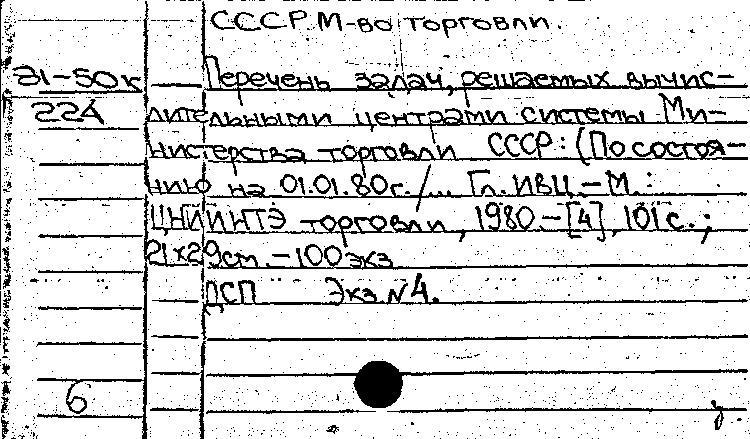 СССР. М-во торговли.
Э1-50к Перечень задач, решаемых вычис-
224 лительными центрами системы Ми-
нистерства торговли СССР: (По состоя-
нию на 01.01.80г. /... Гл. ИВЦ. - М.:
ЦНИИНТЭ торговли, 1980. - [4], 101 с.;
21×29см. - 100 экз
ДСП Экз. N4.
6